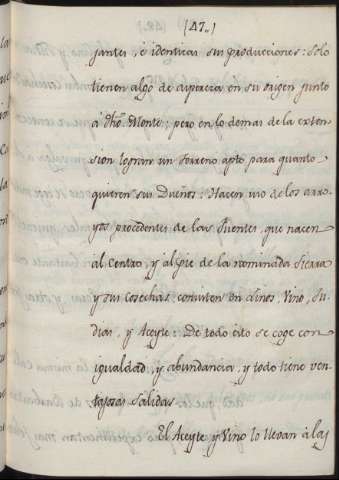 (47.)
jantes, é identicas sus producciones: Solo
tienen algo de aspereza en su origen junto
á dho. Monte; pero en lo demas de la exten-
sion logran un terreno apto para quanto
quieren sus Dueños: Hacen uso de los arro-
yos procedentes de las Fuentes, que nacen
al Centro, y al pie de la nominada Sierra
y sus Cosechas consisten en Linos, Vino, Ju-
dias, y Aceyte: De todo esto se coge con
igualdad, y abundancia, y todo tiene ven-
tajosas salidas.
El Aceyte y Vino lo llevan á las